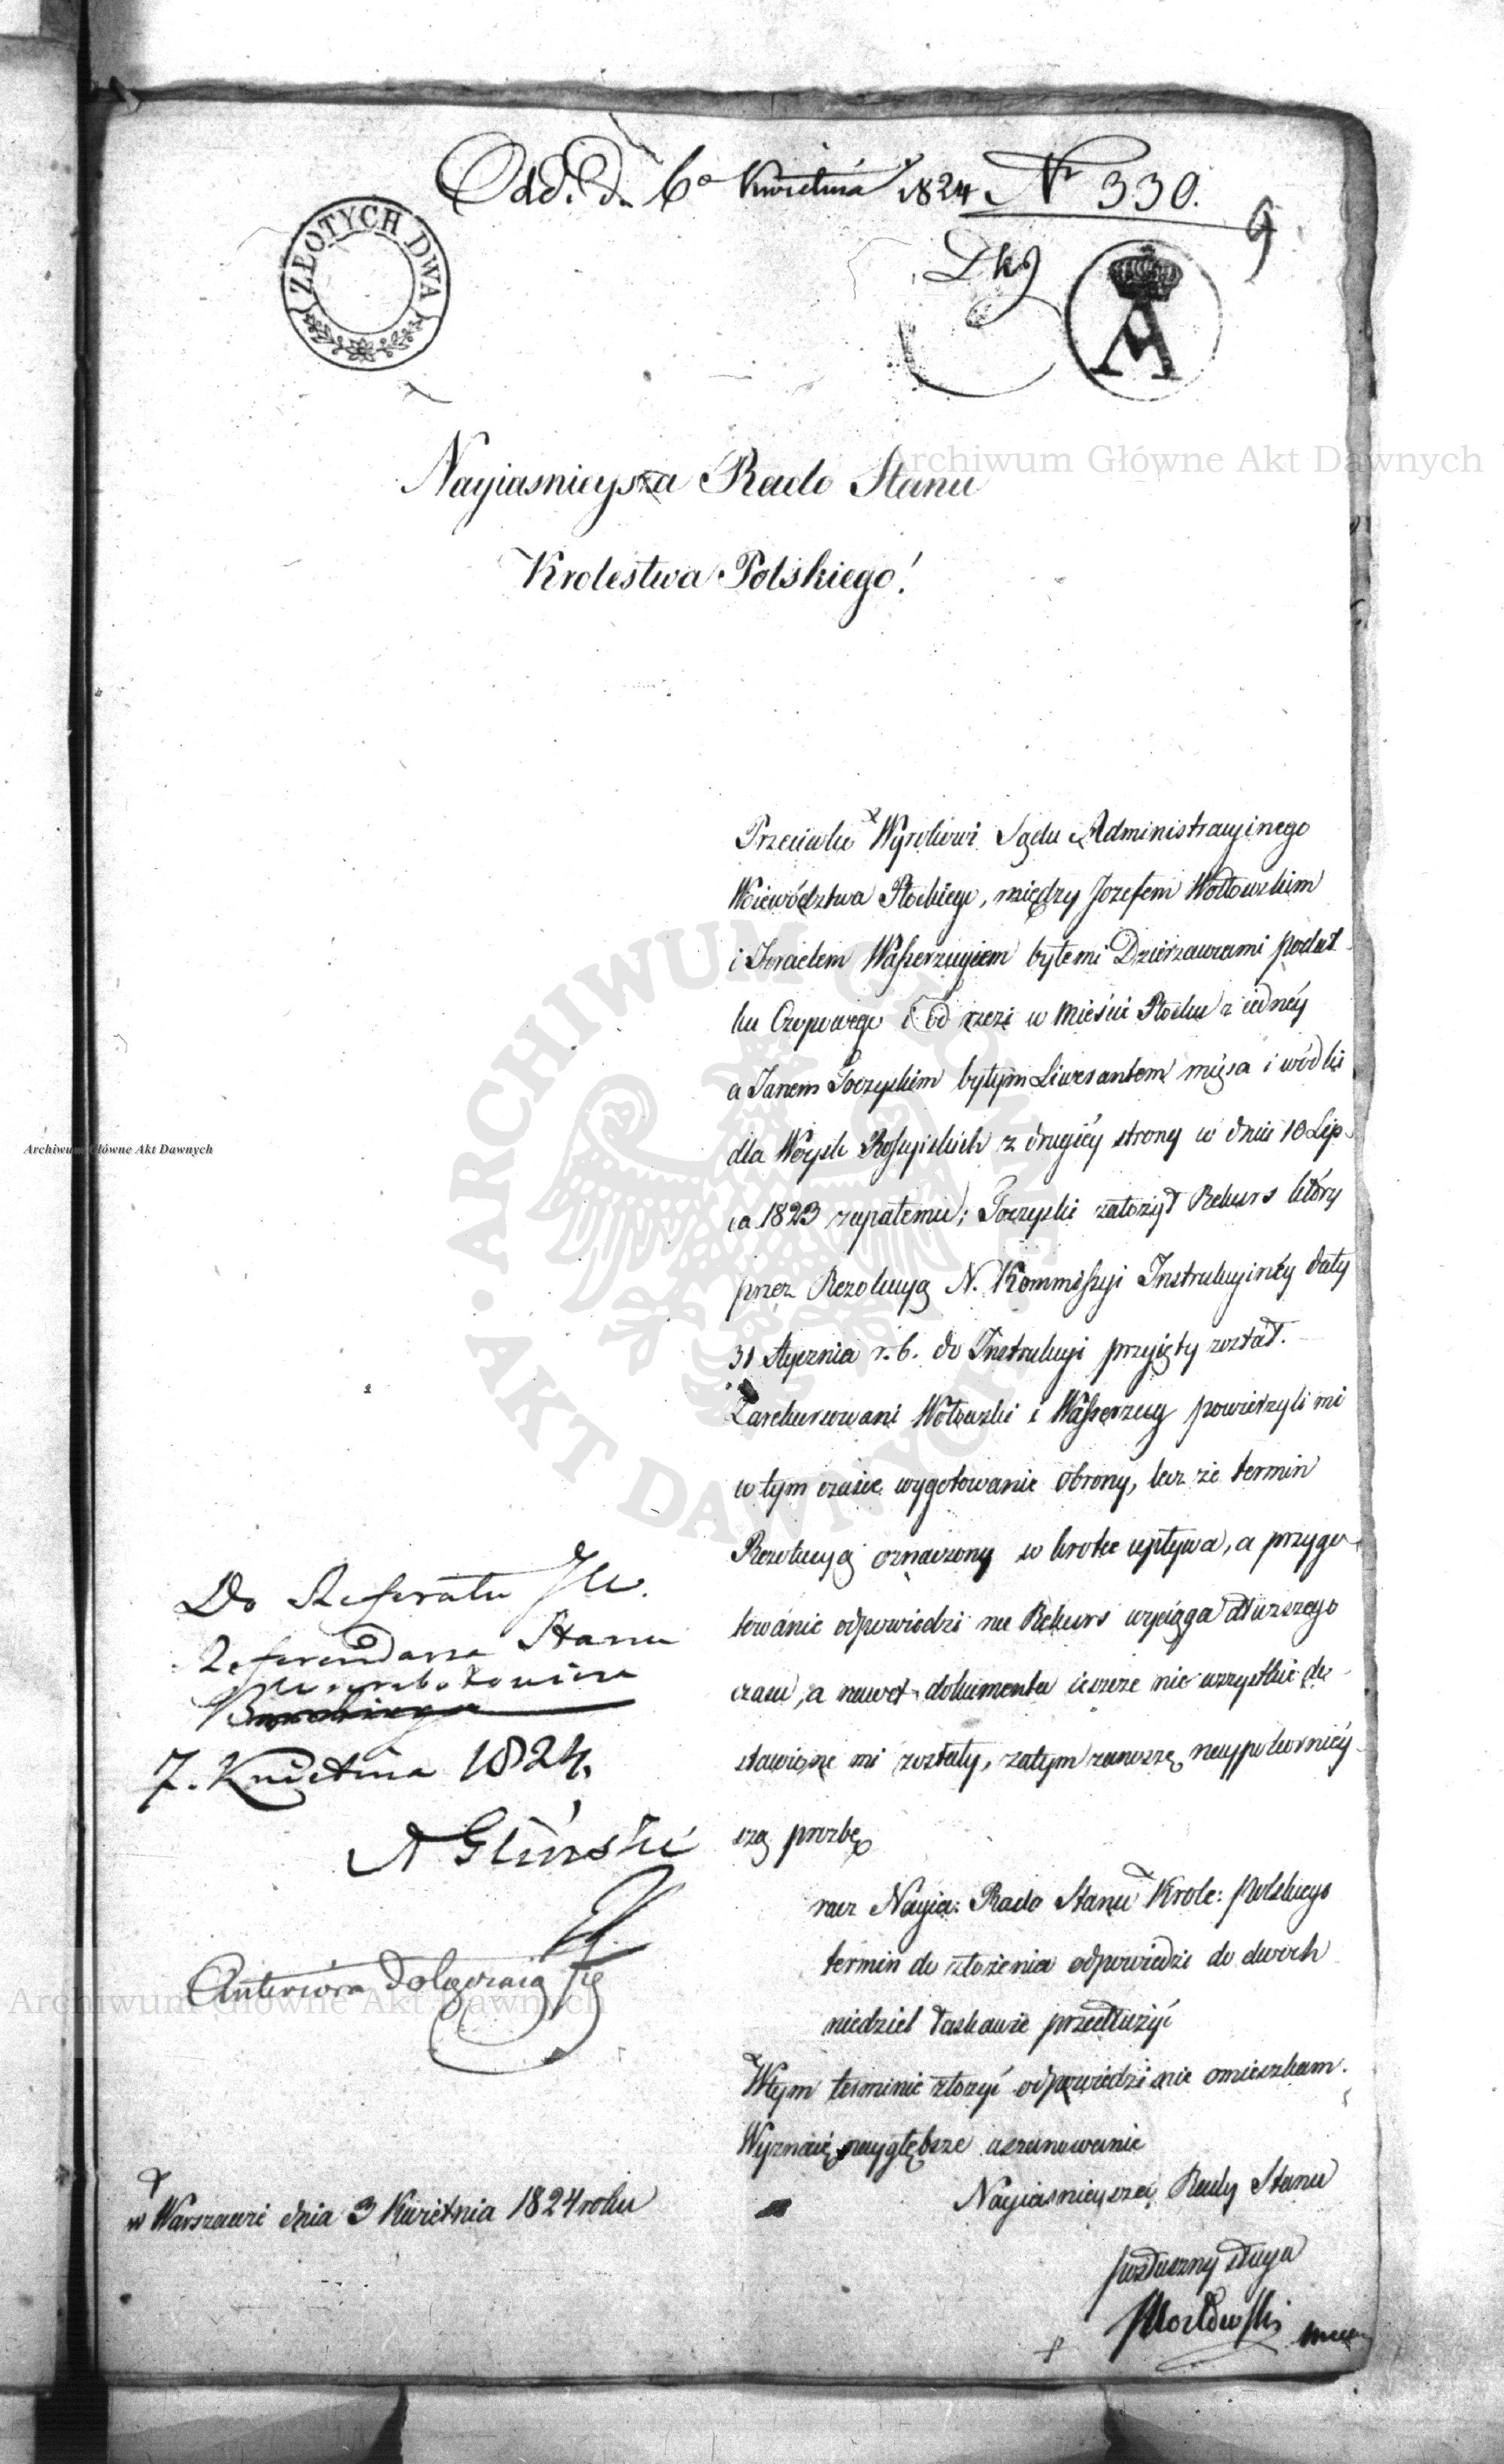 Odd. d. 6º Kwietnia 1824 Nr 330.
9
ZŁOTYCH DWA
A
Nayiasnieysza Rado Stanu
Krolestwa Polskiego!
Przeciwko Wyrokowi Sądu Administracyinego
Woiewództwa Płockiego, między Jozefem Wołowskim
i Izraelem Waszerzugiem byłemi Dzierzawcami podat-
ku Czopowego i od rzezi w Mieście Płocku z iedney
a Janem Goczyskim byłym Liwerantem mięsa i wódki
dla Woysk Rossyiskich z drugiéy strony w dniu 10 Lip-
ca 1823 zapałemu; Goczyski założył Rekurs który
przez Rezolucyą N. Kommissyi Instrukcyinéy daty
31 Stycznia r. b. do Instrukcyi przyięty został.
Zarekurowani Wołowski i Waszerzug powierzyli mi
w tym czasie wygotowanie obrony, lecz że termin
Rezolucyą oznaczony w krotce upływa, a przygo-
towanie odpowiedzi na Rekurs wyciąga dłuzszego
czasu, a nawet dokumenta ieszcze nie wszystkie do-
stawione mi zostały, zatym zanoszę naypokorniey-
szą prozbę
racz Nayia: Rado Stanu Krole: Polskiego
termin do złożenia odpowiedzi do dwoch
niedziel łaskawie przedłużyć
Wtym terminie złożyć odpowiedzi nie omieszkam.
Wyznaię naygłębsze uszanowanie
Nayiasnieyszei Rady Stanu
posłuszny sługa
Do Referatu JW.
Referendarza Stanu
7. Kwietnia 1824.
A Gliński
Anteriora dołączaią się
w Warszawie dnia 3 Kwietnia 1824 roku
Archiwum Główne Akt Dawnych
Archiwum Główne Akt Dawnych
Archiwum Główne Akt Dawnych
ARCHIWUM GŁÓWNE · AKT DAWNYCH ·